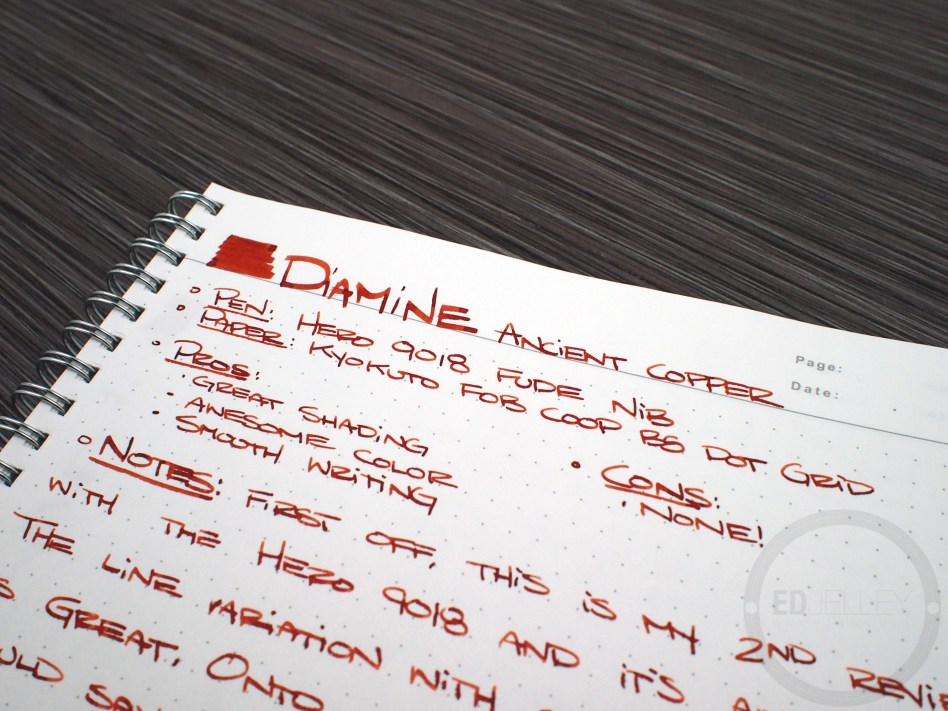 Diamine Ancient Copper
Page:
Date:
• Pen: Hero 9018 Fude Nib
• Paper: Kyokuto FOB COOP B5 Dot Grid
• Pros:
• Great Shading
• Awesome Color
• Smooth Writing
• Cons:
• None!
• Notes: First off, this is my 2nd
with the Hero 9018 and it's
The line variation with
Great. Onto
ED JELLEY